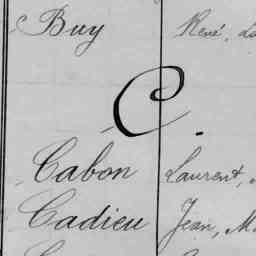 Buy René,
C.
Cabon Laurent,
Cadieu Jean, M